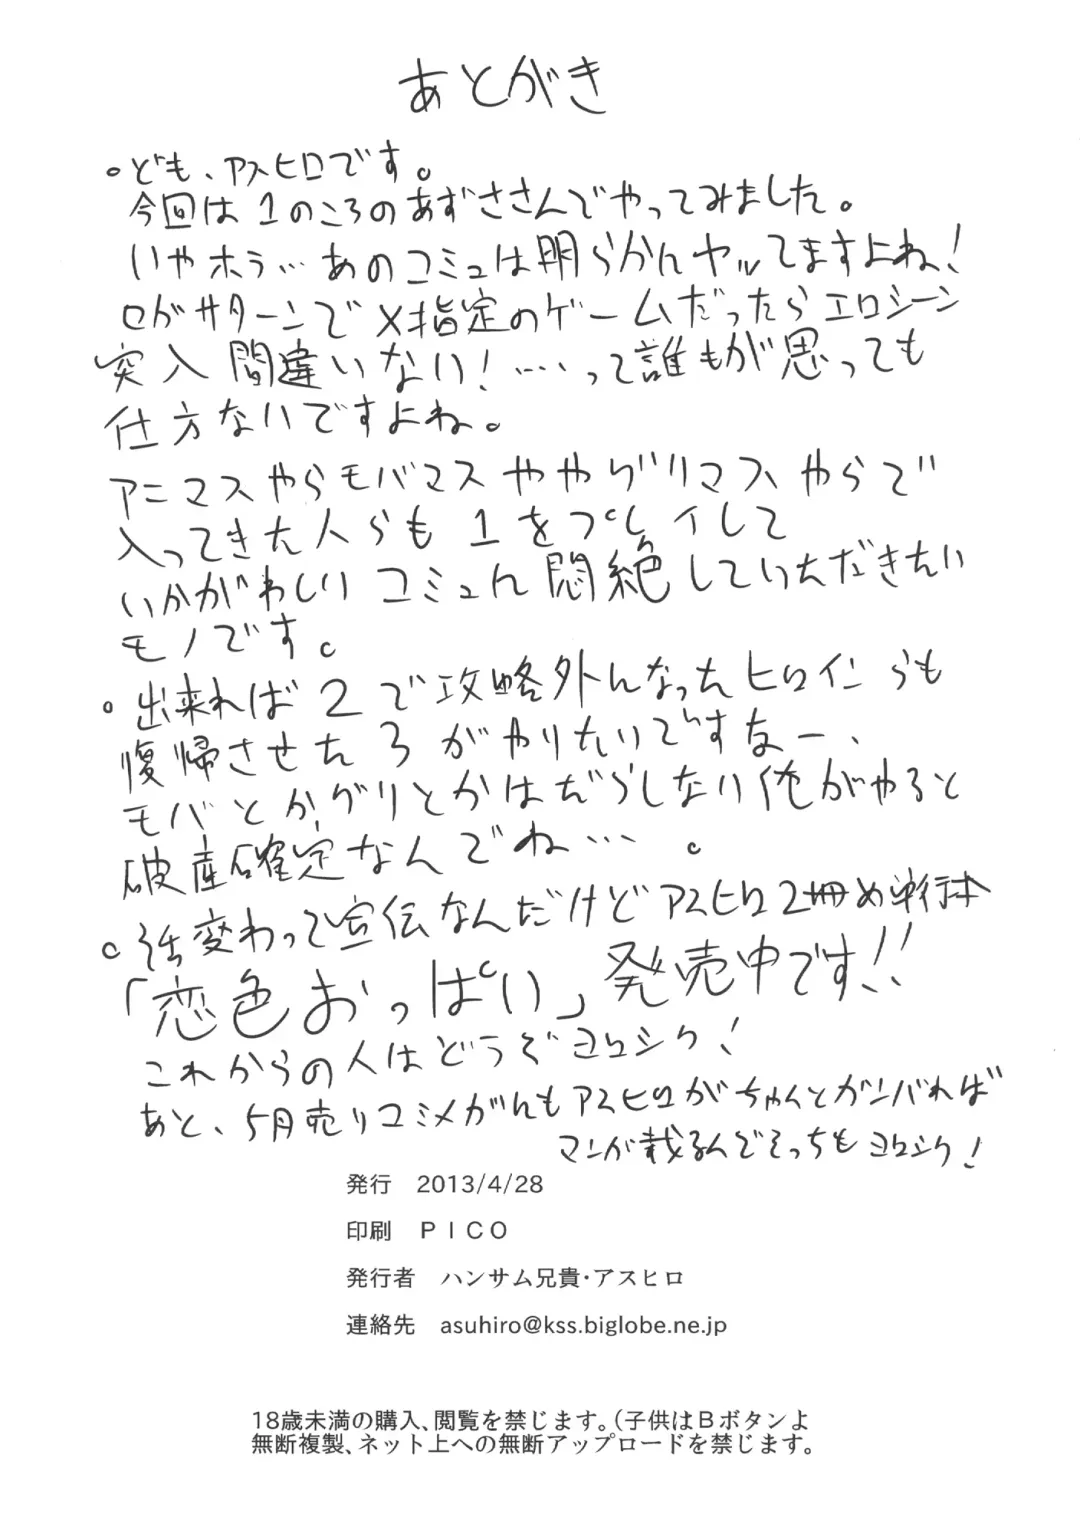 あとがき
。ども、アスヒロです。
今回は1のころのあずささんでやってみました。
いやホラ…あのコミュは明らかにヤってますよね!
セガサターンでX指定のゲームだったらエロシーン
突入間違いない!……って誰もが思っても
仕方ないですよね。
アニマスやらモバマスややグリマスやらで
入ってきた人らも1をプレイして
いかがわしいコミュに悶絶していただきたい
モノです。
。出来れば2で攻略外になったヒロインらも
復帰させたろがやりたいですなー、
モバとかグリとかはだらしない俺がやると
破産確定なんでね…。
。話変わって宣伝なんだけどアスヒロ2冊め単行本
「恋色おっぱい」発売中です!!
これからの人はどうぞヨロシク!
あと、5月売りコミメガにもアスヒロがちゃんとガンバれば
マンガ載るんでそっちもヨロシク!
発行 2013/4/28
印刷 PICO
発行者 ハンサム兄貴・アスヒロ
連絡先 asuhiro@kss.biglobe.ne.jp
18歳未満の購入、閲覧を禁じます。(子供はBボタンよ
無断複製、ネット上への無断アップロードを禁じます。